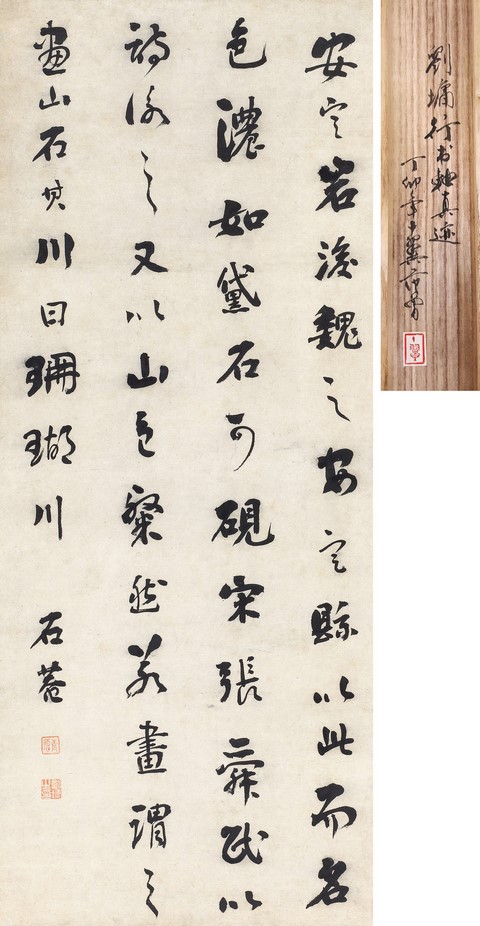 安定岩後魏之安定縣以此而名
色濃如黛石可硯宋張舜民以
詩詠之又以山色粲然若畫謂之
畫山石其川曰珊瑚川
石菴
劉墉行书軸真迹
丁卯年十翼范曾